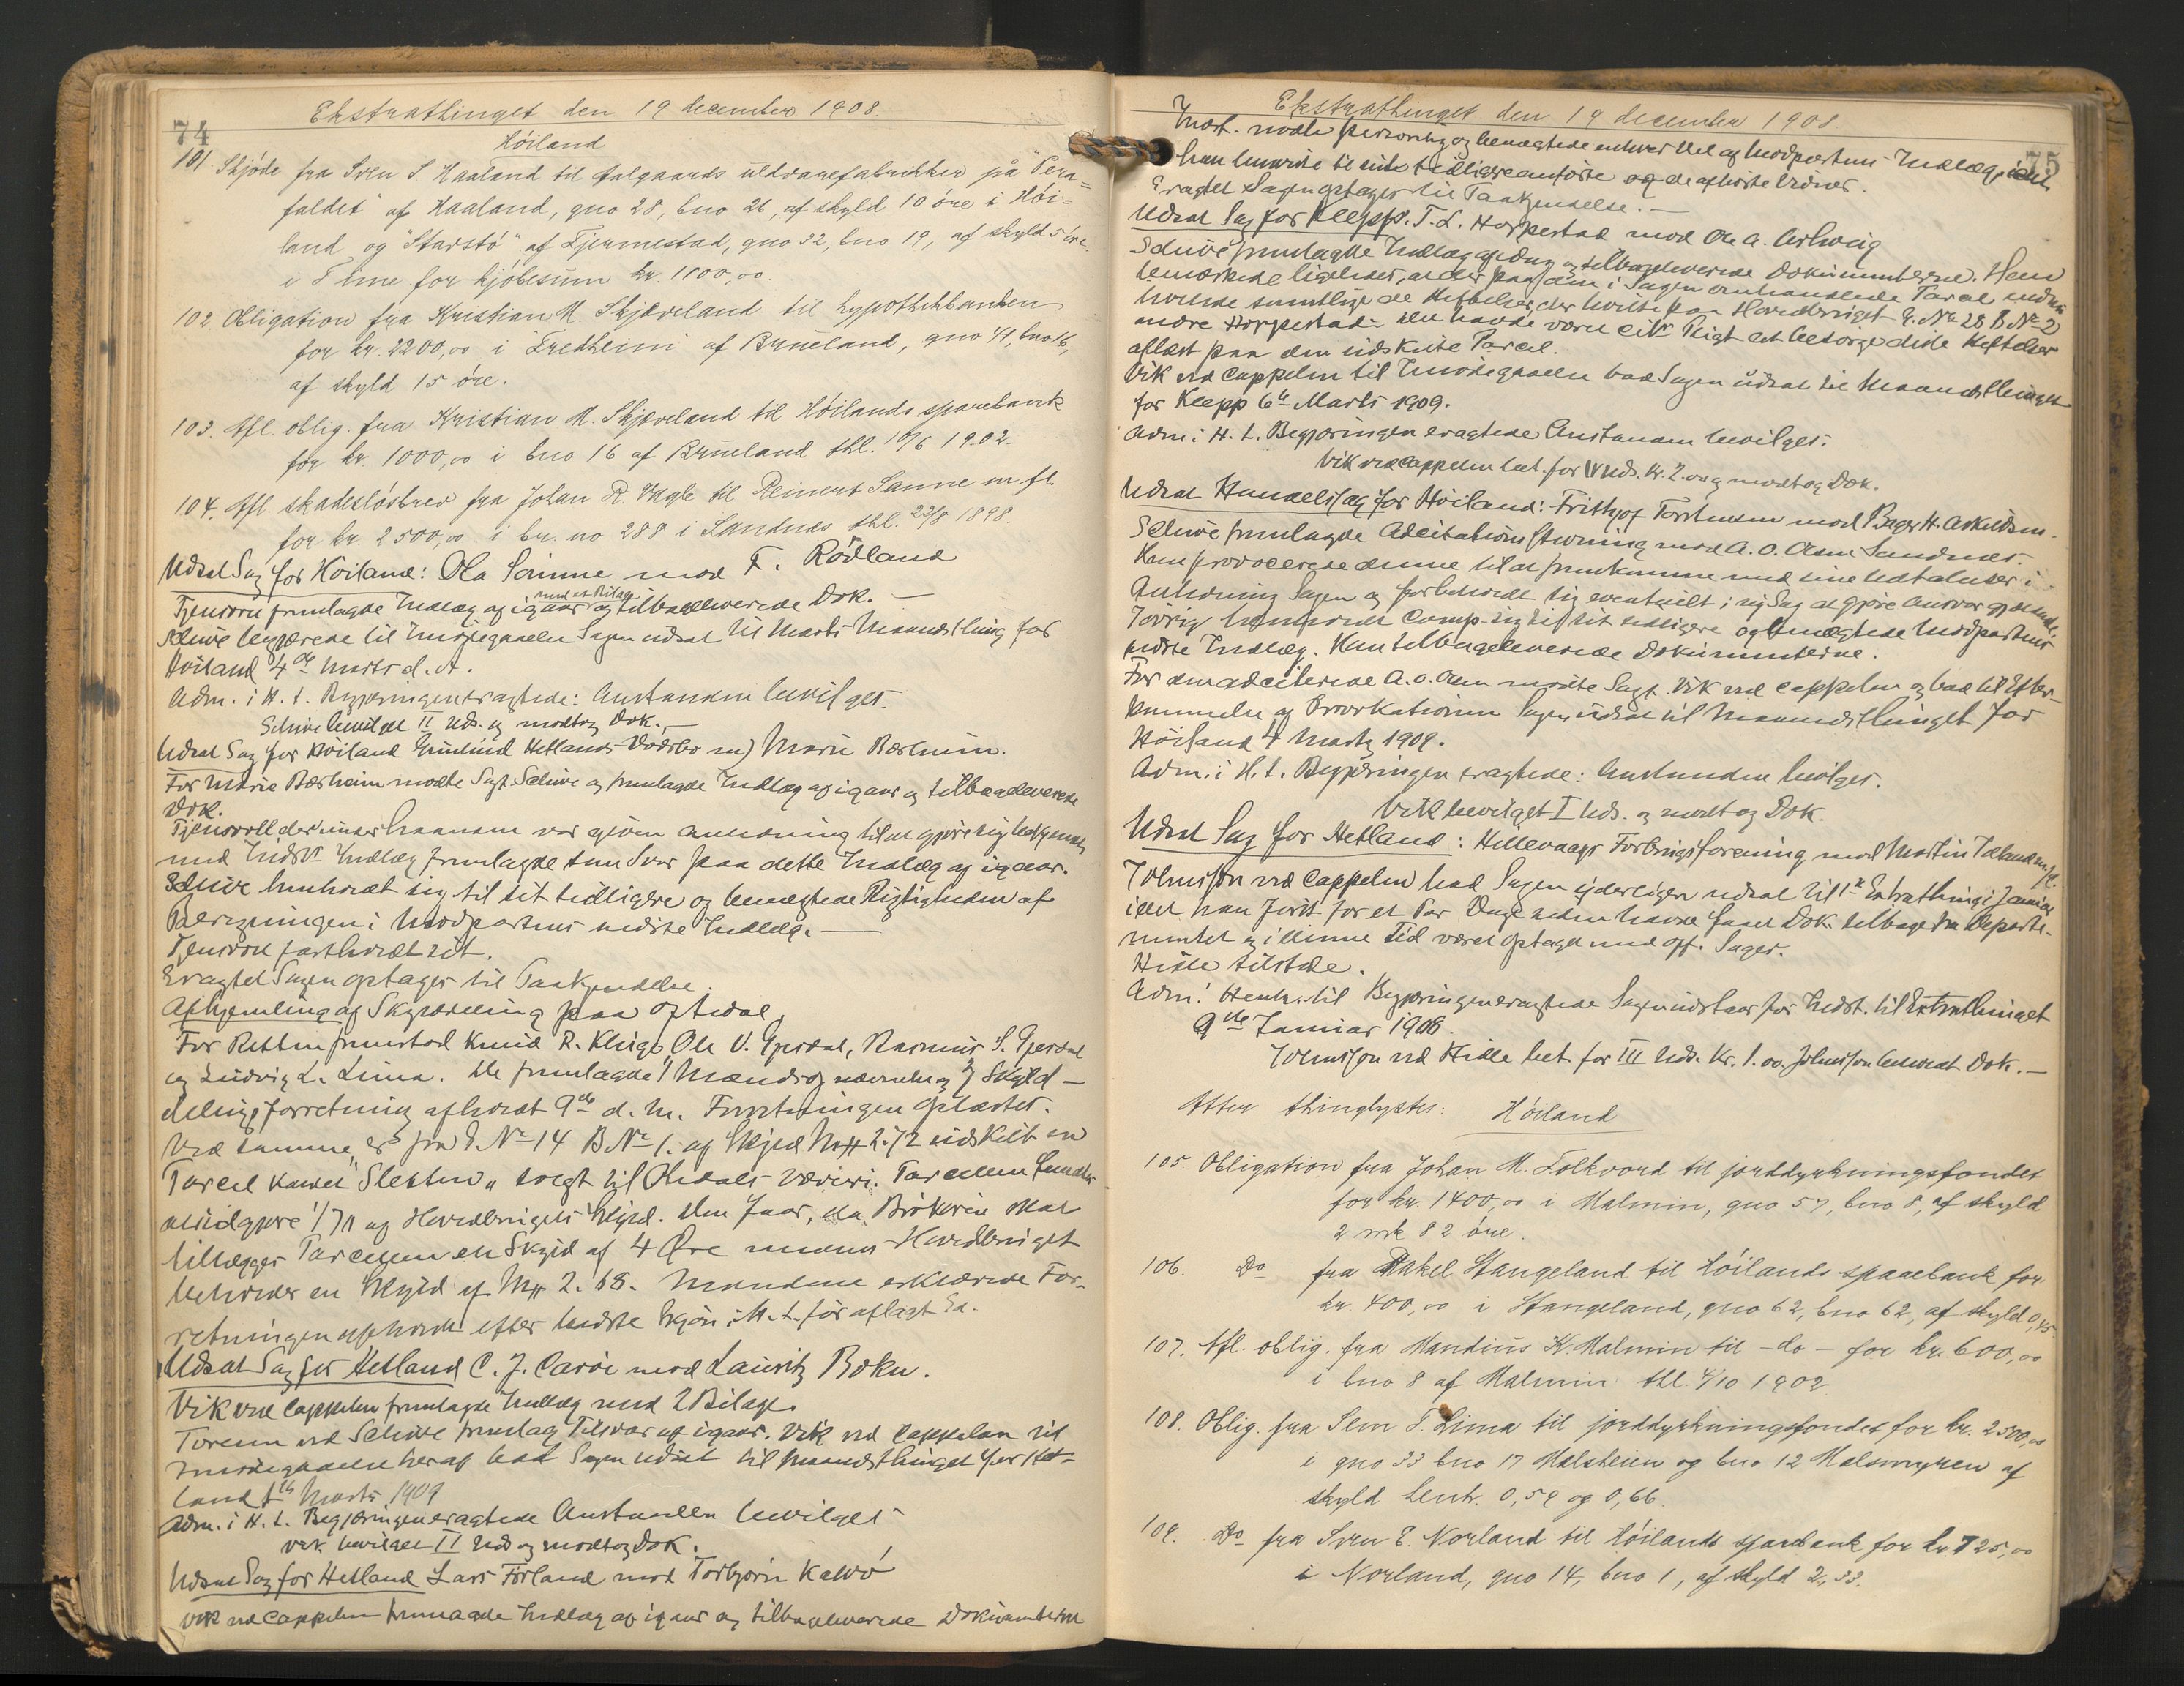 74
Ekstrathinget den 19 december 1908.
Høiland
101. Skjöde fra Sven S Haaland til Aalgaards uldvarefabrikker på "Pera=
faldet" af Haaland, gno 28, bno 26, af skyld 10 öre i Höi=
land og "Starstö" af Tjermestad, gno 32, bno 19, af skyld 5 öre
i Time for kjöbesum kr. 1100,00.
102. Obligation fra Kristian M. Skjæveland til hypothekbanken
for kr. 2200,00 i Fredheim af Brueland, gno 41, bno 16,
af skyld 15 öre.
103. Afl. oblig. fra Kristian M. Skjæveland til Höilands sparebank
for kr. 1000,00 i bno 16 af Brueland thl. 10/6 1902.
104. Afl. skadeslösbrev fra Johan R. Vagle til Reinert Sanne m. fl.
for kr. 2500,00 i br. no 288 i Sandnes thl. 22/8 1898.
Udsat Sag for Höiland: Ola Sörinne mod T. Rödland
med et Bilag
Tjensvoll fremlagde Indlæg af igaar og tilbageleverede Dok. —
Schiwe begjærede til Imødegaaelse Sagen udsat til Marts Maanedsthing for
Höiland 4de Marts d. A.
Adm. i H. t. Begjæringen eragtede: Anstanden bevilget.
Schiwe bevilget II Uds. og modtog Dok. —
Udsat Sag for Höiland Gunhild Hetlands Dödsbo m) Marie Bærheim.
For Marie Bærheim mødte Sagf. Schiwe og fremlagde Indlæg af igaar og tilbageleverede
Dok.
Tjensvoll der under haanden var given anledning til at gjøre sig bekjendt
med Indst. Indlæg fremlagde sine Svar paa dette Indlæg af igaar.
Schiwe henholdt sig til sit tidligere og benægtede Rigtigheden af
Beregningen i Modpartens sidste Indlæg. —
Tjensvoll fastholdt sit.
Eragtet Sagen optages til Paakjendelse.
Afhjemling af Skylddeling paa Oftedal.
For Retten fremstod Knud R. Kluge, Ole V. Gjesdal, Rasmus S. Gjesdal
og Ludvig L. Lima. De fremlagde 1 Mændsopnævnelse og 1 Skyld-
delingsforretning afholdt 9de d. M. Forretningen oplæstes.
Ved samme er fra G. No 14 B. No 1. af Skyld Mk 2.72 udskilt en
Parcel kaldet Sletten solgt til Oltedals Væveri. Parcellen fandtes
at udgjøre 1/70 af Hovedbrugets Skyld. Den faar, Brøkerne skal
tillægges Parcellen en Skyld af 4 Øre medens Hovedbruget
beholder en Skyld af Mk 2.68. Mændene erklærede For-
retningen afholdt efter bedste Skjøn i H. t. før aflagt Ed.
Udsat Sag for Hetland C. J. Carøe mod Lauritz Bøkn.
Vik ved Cappelen fremlagde Indlæg med 2 Bilage.
Toresen ved Schiwe fremlag Tilsvar af igaar. Vik ved Cappelen til
Imødegaaelse heraf bad Sagen udsat til Maanedsthinget for Het-
land 5te Marts 1909
Adm. i H. t. Begjæringen eragtede Anstanden bevilget
Vik bevilget II Uds og modtog Dok.
Udsat Sag for Hetland Lars Förland mod Torbjørn Kalvö
Vik ved Cappelen fremlagde Indlæg af igaar og tilbageleverede Dokumenterne
75
Ekstrathinget den 19 december 1908.
Indst. mødte personlig og benægtede enhver Del af Modpartens Indlæg, idet
han henviste til sit tidligere anførte og de afhørte Vidner.
Eragtet Sagen optages til Paakjendelse. —
Udsat Sag for Klepp. T. L. Hoppestad mod Ole A. Erlweig
Schiwe fremlagde Indlæg af idag og tilbageleverede Dokumenterne. Han
bemærkede ligeledes, at der paa den i Sagen omhandlede Parcel endnu
hvilede samtlige de Heftelser, der hvilte paa Hovedbruget G. No 28 B No 2
indre Hoppestad. Det havde været citr Pligt at besørge disse Heftelser
aflæst paa den udskilte Parcel.
Vik ved Cappelen til Imødegaaelse bad Sagen udsat til Maanedsthinget
for Klepp 6te Marts 1909.
Adm. i H. t. Begjæringen eragtede Anstanden bevilges.
Vik ved Cappelen bet. for IV Uds. Kr. 2.00 og modtog Dok.
Udsat Handelssag for Höiland: Frithjof Torstensen mod Bager H. Askildsen.
Schiwe fremlagde Adcitationsstevning mod A. O. Aasen Sandnes.
Han provocerede denne til at fremkomme med sine Udtalelser i
Anledning Sagen og forbeholdt sig eventuelt i ny Sag at gjøre Ansvar gjældende.
Iøvrig henholdt Comp. sig til sit tidligere og benægtede Modpartens
sidste Indlæg. Han tilbageleverede Dokumenterne.
For den adciterede A. O. Aasen mødte Sagf. Vik ved Cappelen og bad til Efter-
kommelse af Provokationen Sagen udsat til Maanedsthinget for
Höiland 4 Marts 1909.
Adm. i H. t. Begjæringen eragtede: Anstanden bevilges.
Vik bevilget I Uds. og modtog Dok.
Udsat Sag for Hetland: Hillevaags Forbrugsforening mod Martin Tdland m. fl.
Johnsson ved Cappelen bad Sagen yderligere udsat til 1ste Extrathing i Januar,
idet han først for et Par Dage siden havde faaet Dok. tilbage fra Departe-
mentet og i denne Tid været optaget med off. Sager.
Hidle tilstede.
Adm! Henh. til Begjæringen eragtede Sagen udstaar for Indst. til Extrathinget
9de Januar 1908.
Johnsson ved Hidle bet. for III Uds. Kr. 1.00. Johnsson beholdt Dok. —
Atter thinglystes: Höiland
105. Obligation fra Johan M. Folkvord til jorddyrkningsfondet
for kr. 1400,00 i Malmin, gno 57, bno 8, af skyld
2 mk 82 öre.
106. Do fra Rakel Stangeland til Höilands sparebank for
kr. 400,00 i Stangeland, gno 62, bno 62, af skyld 0,45
107. Afl. oblig. fra Mandius K. Malmin til - do - for kr. 600,00
i bno 8 af Malmin thl. 4/10 1902.
108. Oblig. fra Sem T. Lima til jorddyrkningsfondet for kr. 2500,00
i gno 33 bno 17 Malsheien og bno 12 Malsmyren af
skyld henh. 0,59 og 0,66.
109. Do fra Sven E. Norland til Höilands sparebank for kr. 725,00
i Norland, gno 14, bno 1, af skyld 2,33.